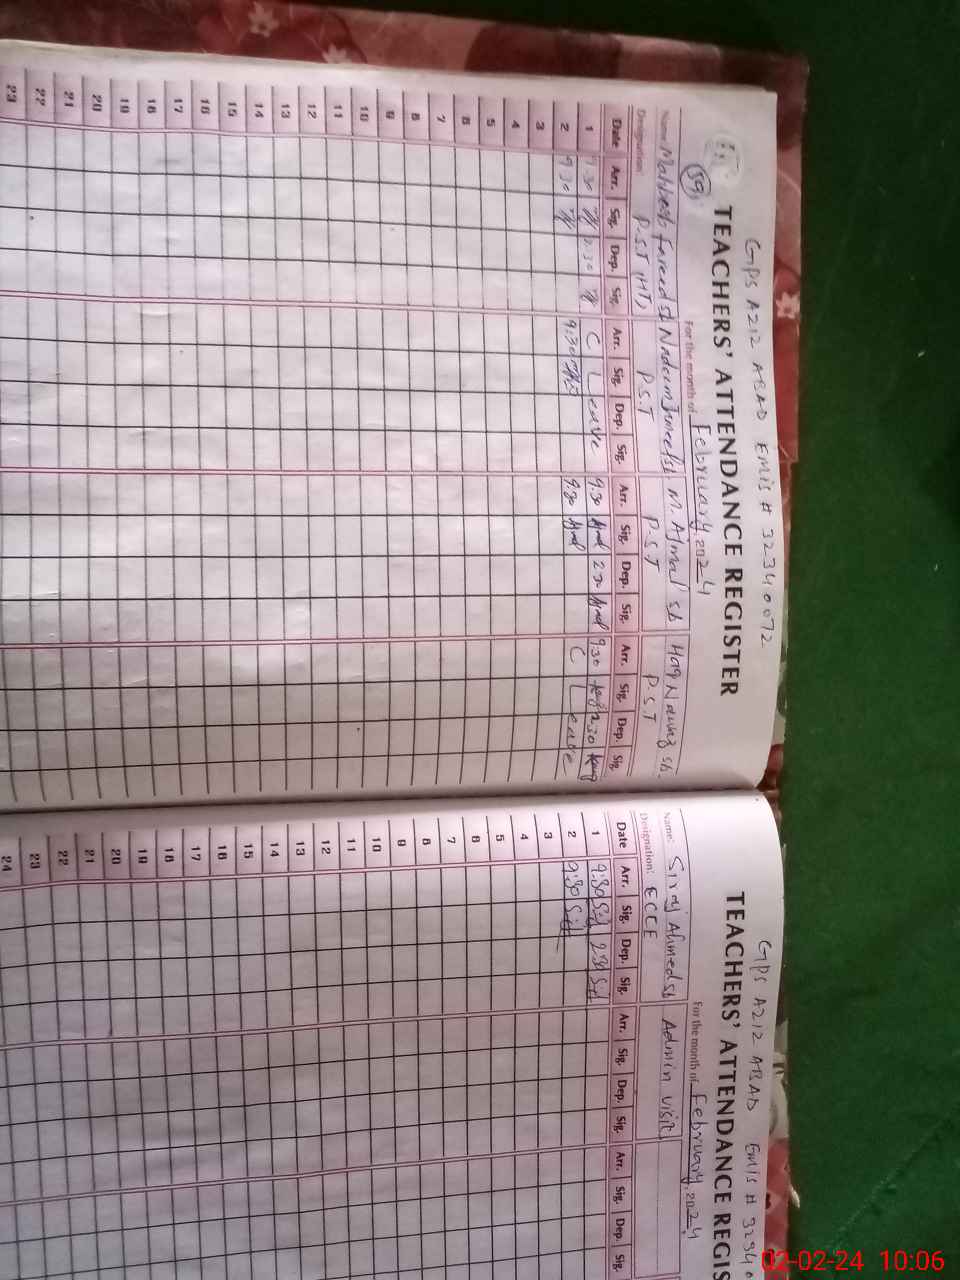 GPS AZIZ ABAD EMIS # 32340072
TEACHERS' ATTENDANCE REGISTER
59
For the month of February, 2024
Name: Fareed sb M. Ajmal sb Haq Nawaz sb.
Designation: P.S.T (HT) P.S.T P.S.T P.S.T
Date Arr. Sig. Dep. Sig. Arr. Sig. Dep. Sig. Arr. Sig. Dep. Sig. Arr. Sig. Dep. Sig.
1 9:30 2:30 C Leave 9:30 2:30 9:30 2:30
2 9:30 9:30 9:30 C Leave
3
4
5
6
7
8
9
10
11
12
13
14
15
16
17
18
19
20
21
22
23
GPS AZIZ ABAD EMIS # 3234
TEACHERS' ATTENDANCE REGIS
For the month of February, 2024
Name: Siraj Ahmed sb Admin visit
Designation: ECCE
Date Arr. Sig. Dep. Sig. Arr. Sig. Dep. Sig. Arr. Sig. Dep. Sig.
1 9:30 2:30
2 9:30
3
4
5
6
7
8
9
10
11
12
13
14
15
16
17
18
19
20
21
22
23
24
02-02-24 10:06